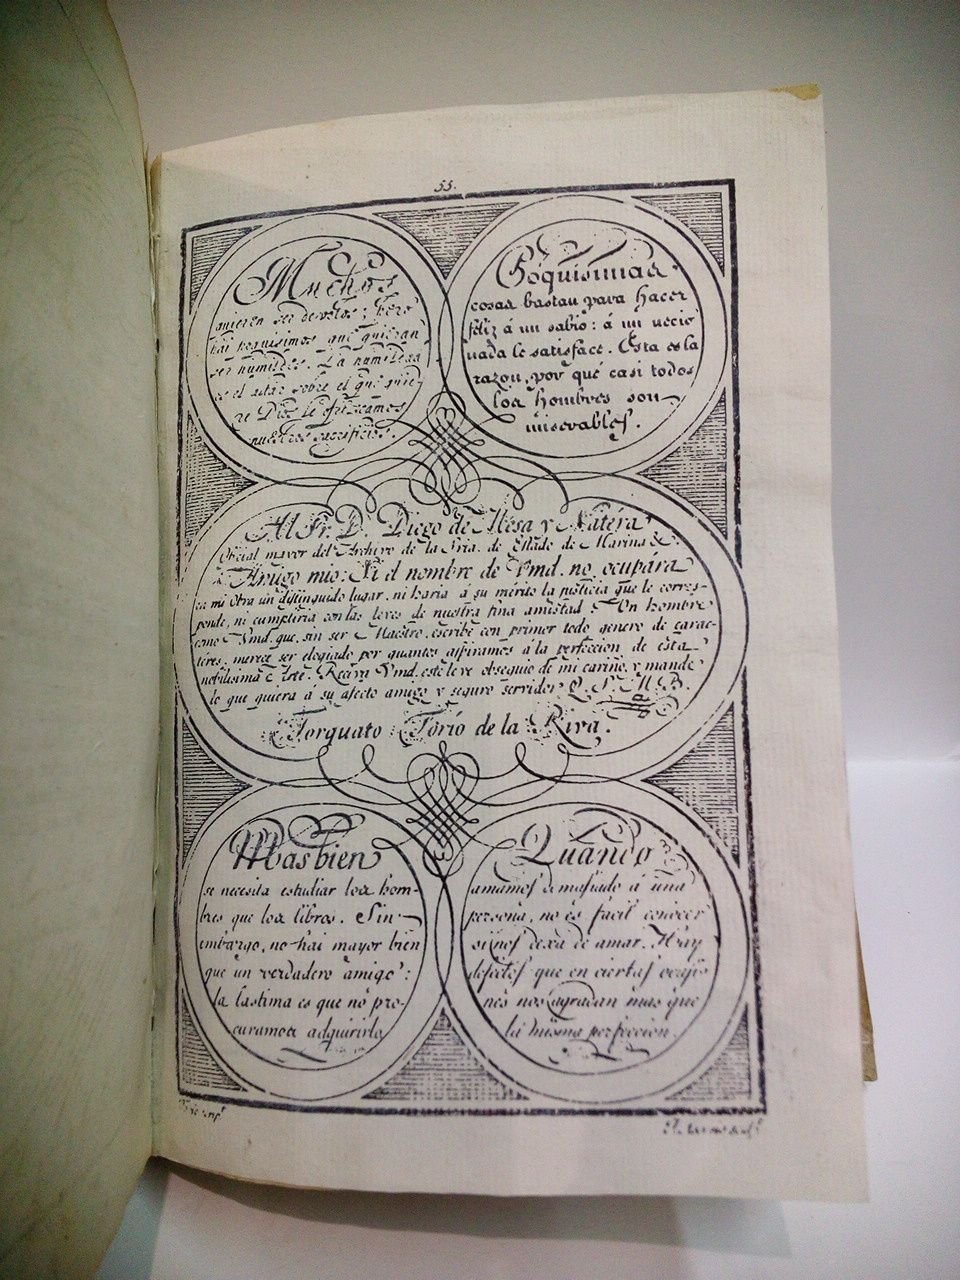 55.
Muchos
quieren ser devotos; pero
hai poquisimos que quieran
ser humildes. La humildad
es el altar sobre el que quie-
re Dios le ofrezcamos
nuestros sacrificios.
Poquisimas
cosas bastan para hacer
feliz á un sabio: á un necio
nada le satisface. Esta es la
razon, por que casi todos
los hombres son
miserables.
Al Sr. D. Diego de Mesa y Natéra
Oficial mayor del Archivo de la Sria. de Estado de Marina &c.
Amigo mio: Si el nombre de Vmd. no ocupára
en mi Obra un distinguido lugar, ni haria á su merito la justicia que le corres-
ponde, ni cumpliria con las leyes de nuestra fina amistad. Un hombre
como Vmd. que, sin ser Maestro, escribe con primor todo genero de carac-
téres, merece ser elogiado por quantos aspiramos á la perfeccion de esta
nobilisima Arte. Reciva Vmd. este leve obsequio de mi cariño, y mande
lo que quiera á su afecto amigo y seguro servidor Q. S. M. B.
Torquato Torío de la Riva.
Mas bien
se necesita estudiar los hom-
bres que los libros. Sin
embargo, no hai mayor bien
que un verdadero amigo:
la lastima es que no pro-
curamos adquirirlo
Quando
amamos demasiado á una
persona, no es facil conocer
si nos dexa de amar. Hay
defectos que en ciertas ocasio-
nes nos agradan mas que
la misma perfeccion.